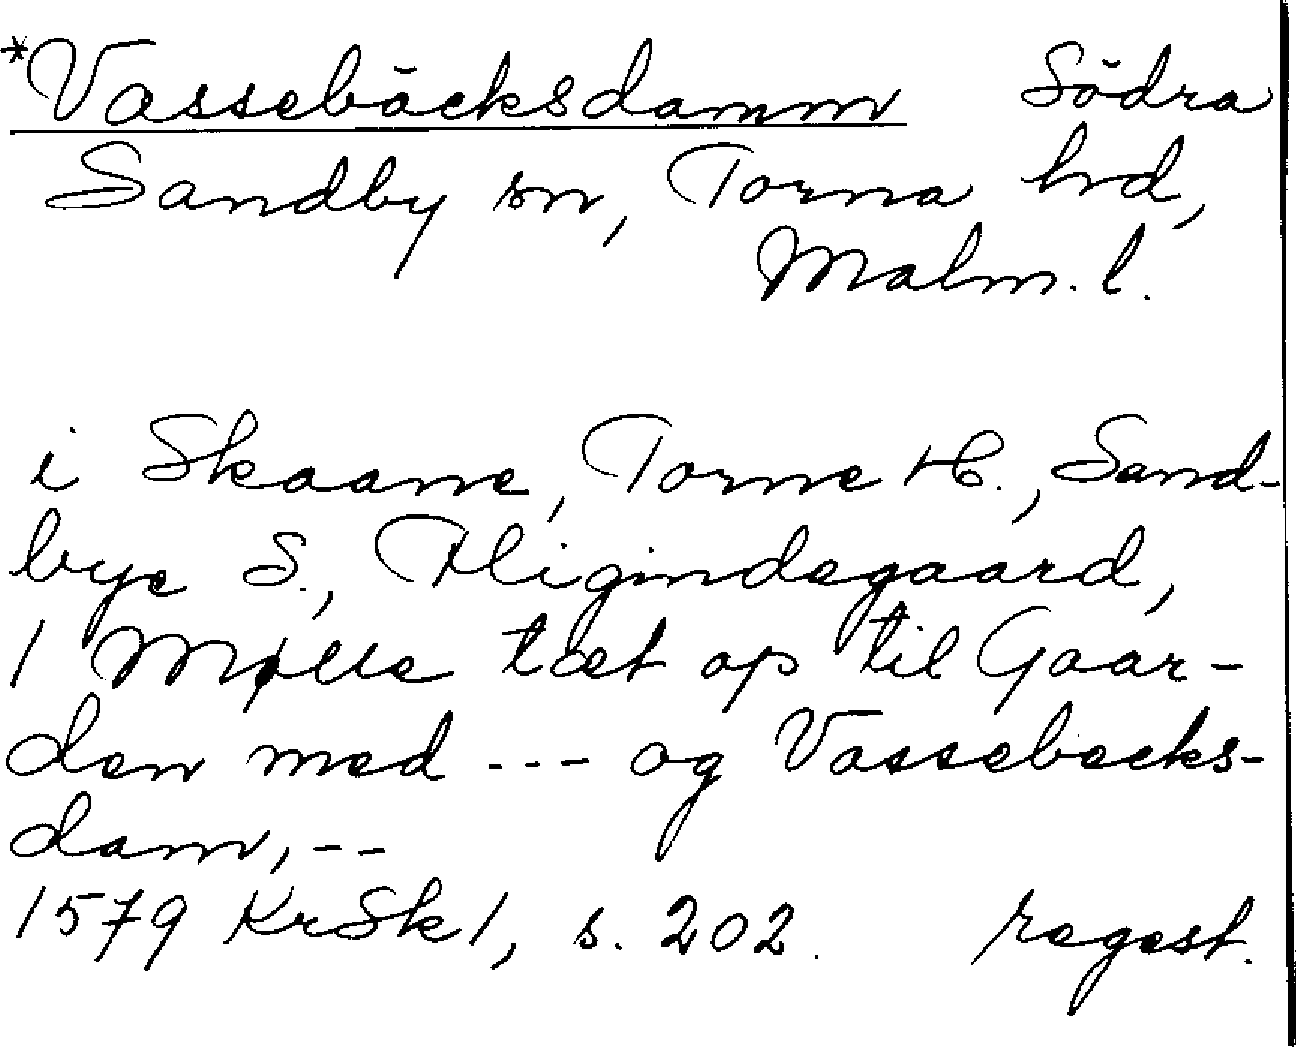 *Vassebäcksdamm Södra
Sandby sn, Torna hd,
Malm. l.
i Skaane, Torne H., Sand-
bye S., Fligindegaard,
1 Mølle tæt op til Gaar-
den med --- og Vassebecks-
dam, --
1579 KrSk1, s. 202. regest.